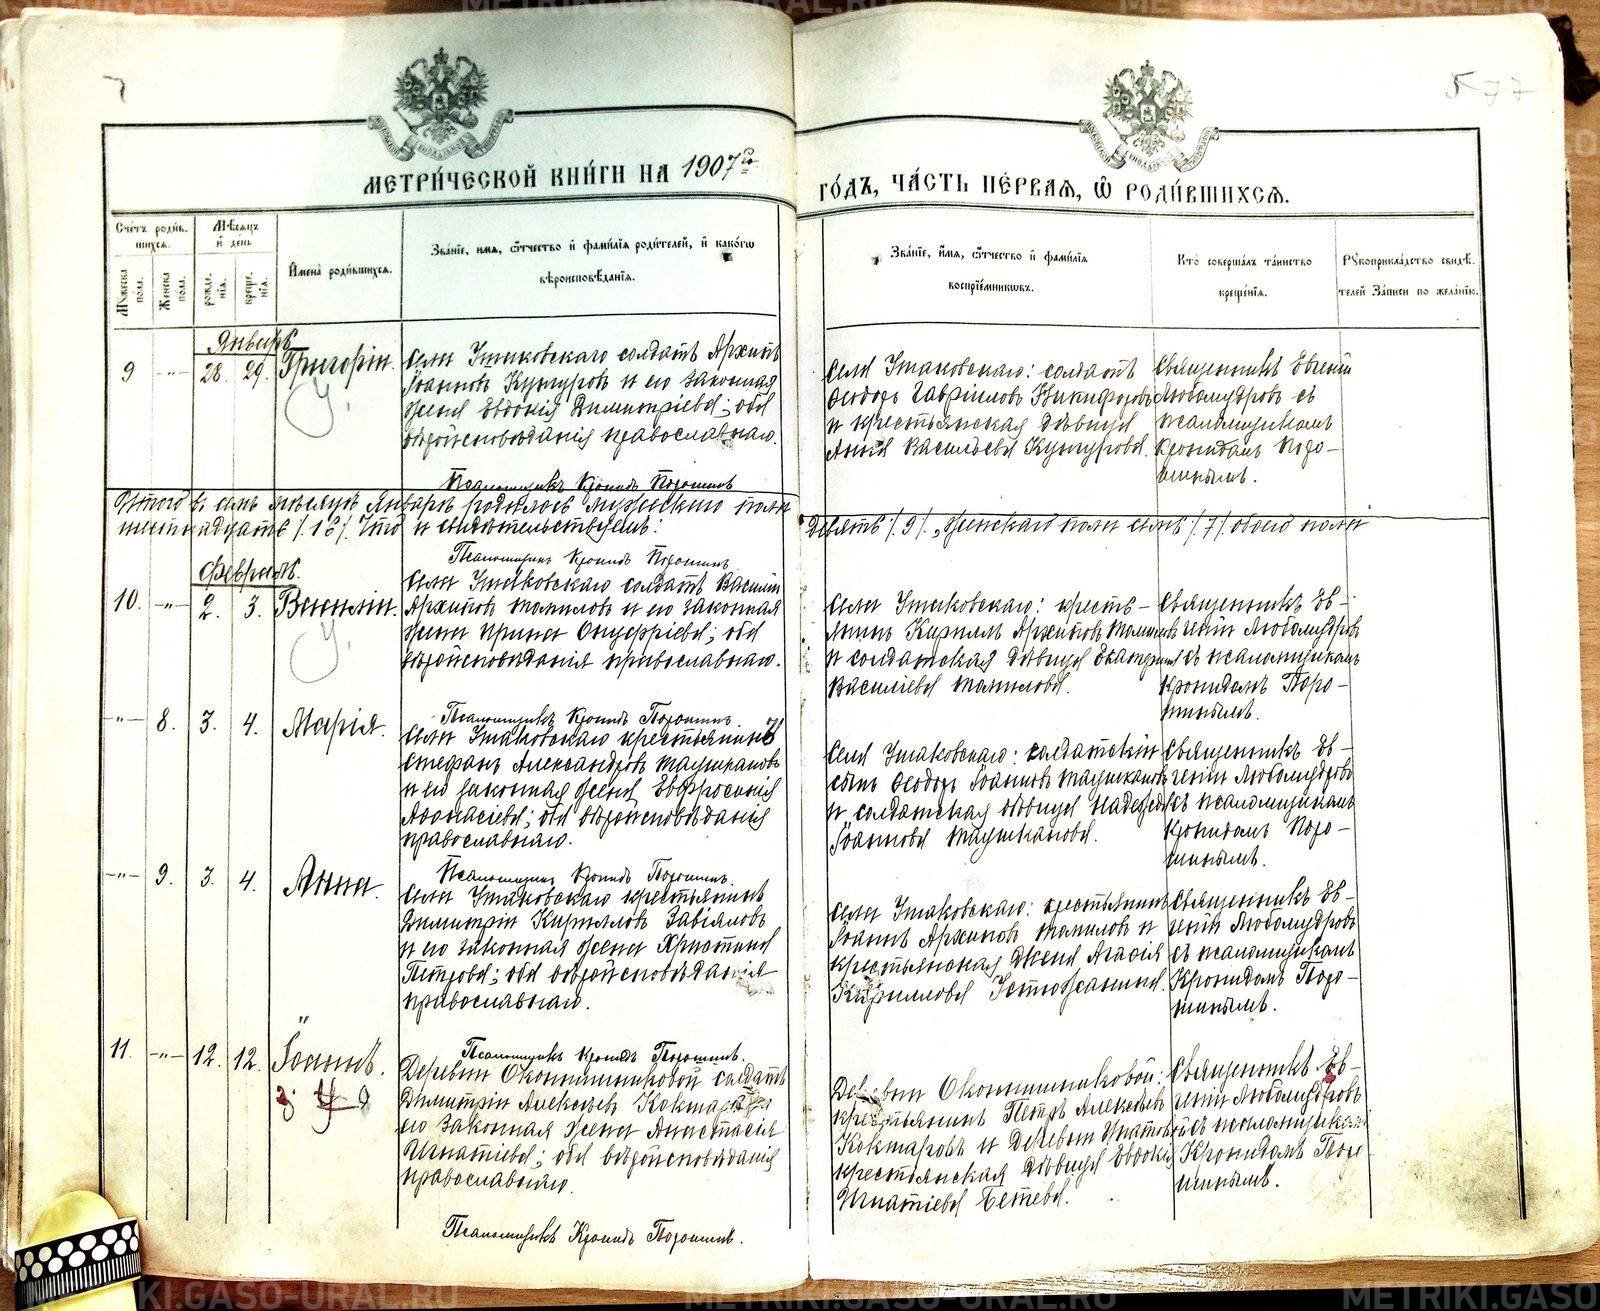 7
577
МЕТРИ́ЧЕСКОЙ КНИ́ГИ НА 1907го
ГО́ДЪ, ЧА́СТЬ ПЕ́РВАѦ, Ѿ РОДИ́ВШИХСѦ.
Счетъ родив-
шихся.
Мѣсяцъ
и день
Мужеска пола.
Женска пола.
рожде-
нія.
креще-
нія.
Имена родившихся.
Званіе, имя, отчество и фамилія родителей, и какого
вѣроисповѣданія.
Званіе, имя, отчество и фамилія
воспріемниковъ.
Кто совершалъ таинство
крещенія.
Рукоприкладство свидѣ-
телей записи по желанію.
Январь
9 -"- 28. 29. Григорій.
Села Утаковскаго солдатъ Архипъ
Іоанновъ Кунгуровъ и его законная
жена Евдокія Димитріева; оба
вѣроисповѣданія православнаго.
Села Утаковскаго: солдатъ
Ѳеодоръ Гавріиловъ Никифоровъ
и крестьянская дѣвица
Анна Васильева Кунгурова.
Священникъ Евгеній
Любомудровъ съ
псаломщикомъ
Кронидомъ Поро-
шинымъ.
Псаломщикъ Кронидъ Порошинъ
Итого въ семъ мѣсяцѣ Январѣ родилось мужескаго пола
Девять /9/, женскаго пола семь /7/ обоего пола
шестнадцать /16/. Что и свидѣтельствуемъ:
Псаломщикъ Кронидъ Порошинъ
Февраль.
10. -"- 2. 3. Василій.
Села Утаковскаго солдатъ Василій
Архиповъ Томиловъ и его законная
жена Ирина Онуфріева; оба
вѣроисповѣданія православнаго.
Села Утаковскаго: кресть-
янинъ Кириллъ Архиповъ Томиловъ
и солдатская дѣвица Екатерина
Василіева Томилова.
Священникъ Ев-
геній Любомудровъ
съ псаломщикомъ
Кронидомъ Поро-
шинымъ.
Псаломщикъ Кронидъ Порошинъ.
-"- 8. 3. 4. Марія.
Села Утаковскаго крестьянинъ
Стефанъ Александровъ Таушкановъ
и его законная жена Евфросинія
Аѳанасіева; оба вѣроисповѣданія
православнаго.
Села Утаковскаго: солдатскій
сынъ Ѳеодоръ Іоанновъ Таушкановъ
и солдатская дѣвица Надежда
Іоаннова Таушканова.
Священникъ Ев-
геній Любомудровъ
съ псаломщикомъ
Кронидомъ Поро-
шинымъ.
Псаломщикъ Кронидъ Порошинъ.
-"- 9. 3. 4. Анна.
Села Утаковскаго крестьянинъ
Димитрій Кирилловъ Завіяловъ
и его законная жена Христина
Петрова; оба вѣроисповѣданія
православнаго.
Села Утаковскаго: крестьянинъ
Іоаннъ Архиповъ Томиловъ и
крестьянская жена Агаѳія
Кириллова Устюжанина.
Священникъ Ев-
геній Любомудровъ
съ псаломщикомъ
Кронидомъ Поро-
шинымъ.
Псаломщикъ Кронидъ Порошинъ.
11. -"- 12. 12. Іоаннъ.
Деревни Оконишниковой солдатъ
Димитрій Алексѣевъ Кокшаровъ и
его законная жена Анастасія
Игнатіева; оба вѣроисповѣданія
православнаго.
Деревни Оконишниковой:
крестьянинъ Петръ Алексѣевъ
Кокшаровъ и деревни Ипатовой
крестьянская дѣвица Евдокія
Игнатіева Бетева.
Священникъ Ев-
геній Любомудровъ
съ псаломщикомъ
Кронидомъ Поро-
шинымъ.
Псаломщикъ Кронидъ Порошинъ.
METRIKI.GASO-URAL.RU